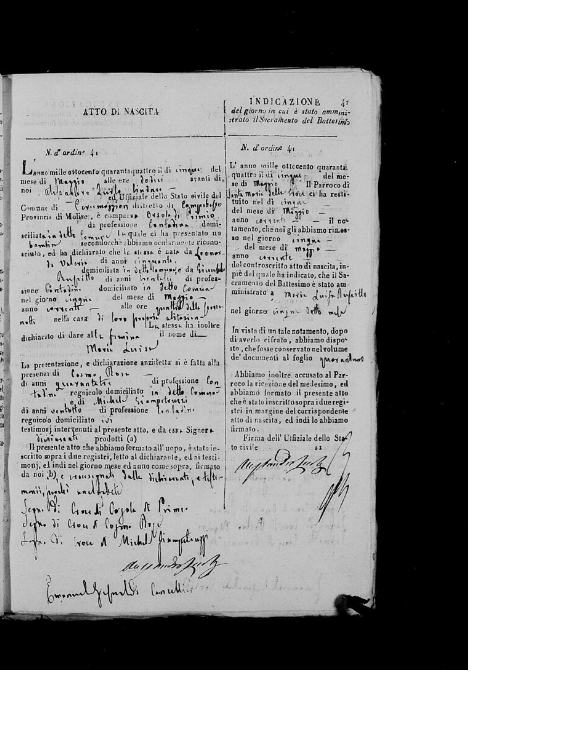 ATTO DI NASCITA
N. d'ordine 41
L'anno mille ottocento quarantaquattro il di cinque del
mese di Maggio alle ore avanti di
noi Alessandro Sindaco
ed Uffiziale dello Stato civile del
Comune di distretto di Campobasso
Provincia di Molise, è comparsa Orsola di Primio
di professione Contadina domi-
ciliata in detto Comune la quale ci ha presentato una
bambina secondochè abbiamo ocularmente ricono-
sciuto, ed ha dichiarato che la stessa è nata da
di Valerio di anni
domiciliata in detto Comune da Giuseppe
di anni di profes-
sione Contadino domiciliato in detto Comune
nel giorno cinque del mese di Maggio
anno corrente alle ore quattro
notte nella casa di loro propria abitazione
La stessa ha inoltre
dichiarato di dare alla femina il nome di
Maria Luisa
La presentazione, e dichiarazione anzidetta si è fatta alla
presenza di Cosmo Rose
di anni di professione Con
tadino regnicolo domiciliato in detto Comune
e di Michele
di anni ventotto di professione Contadino
regnicolo domiciliato ivi
testimonj intervenuti al presente atto, e da essa Signora
dichiarante prodotti (a)
Il presente atto che abbiamo formato all'uopo, è stato in-
scritto sopra i due registri, letto al dichiarante, ed ai testi-
monj, ed indi nel giorno mese ed anno come sopra, firmato
da noi (b), e crocesegnato dalla dichiarante, e testi-
monii, perchè analfabeti
Segno di Croce di Orsola di Primio
Segno di Croce di Cosmo Rose
Segno di Croce di Michele
Emanuel Cancelliere
INDICAZIONE 41
del giorno in cui è stato ammini-
strato il Sacramento del Battesimo
N. d'ordine 41
L'anno mille ottocento quaranta
quattro il di cinque del me-
se di Maggio Il Parroco di
Santa Maria delle ci ha resti-
tuito nel dì cinque
del mese di Maggio
anno corrente il no-
tamento, che noi gli abbiamo rimes-
so nel giorno cinque
del mese di Maggio
anno corrente
del controscritto atto di nascita, in-
piè del quale ha indicato, che il Sa-
cramento del Battesimo è stato am-
ministrato a Maria Luisa
nel giorno cinque detto mese
In vista di un tale notamento, dopo
di averlo cifrato, abbiamo dispo-
sto, che fosse conservato nel volume
de' documenti al foglio quarantuno
Abbiamo inoltre accusato al Par-
roco la ricezione del medesimo, ed
abbiamo formato il presente atto
che è stato inscritto sopra i due regi-
stri in margine del corrispondente
atto di nascita, ed indi lo abbiamo
firmato.
Firma dell'Uffiziale dello Sta-
to civile